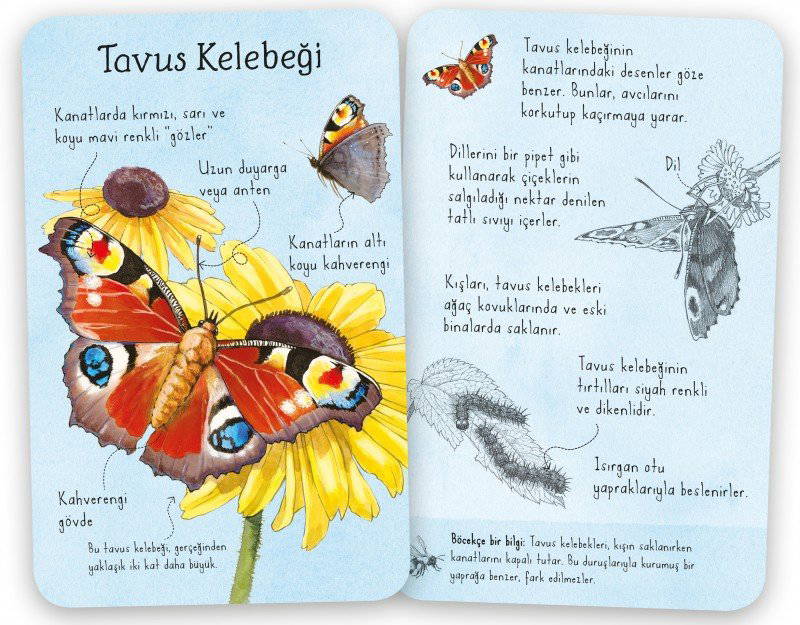 Tavus Kelebeği
Kanatlarda kırmızı, sarı ve
koyu mavi renkli "gözler"
Uzun duyarga
veya anten
Kanatların altı
koyu kahverengi
Kahverengi
gövde
Bu tavus kelebeği, gerçeğinden
yaklaşık iki kat daha büyük.
Tavus kelebeğinin
kanatlarındaki desenler göze
benzer. Bunlar, avcılarını
korkutup kaçırmaya yarar.
Dillerini bir pipet gibi
kullanarak çiçeklerin
salgıladığı nektar denilen
tatlı sıvıyı içerler.
Dil
Kışları, tavus kelebekleri
ağaç kovuklarında ve eski
binalarda saklanır.
Tavus kelebeğinin
tırtılları siyah renkli
ve dikenlidir.
Isırgan otu
yapraklarıyla beslenirler.
Böcekçe bir bilgi: Tavus kelebekleri, kışın saklanırken
kanatlarını kapalı tutar. Bu duruşlarıyla kurumuş bir
yaprağa benzer, fark edilmezler.